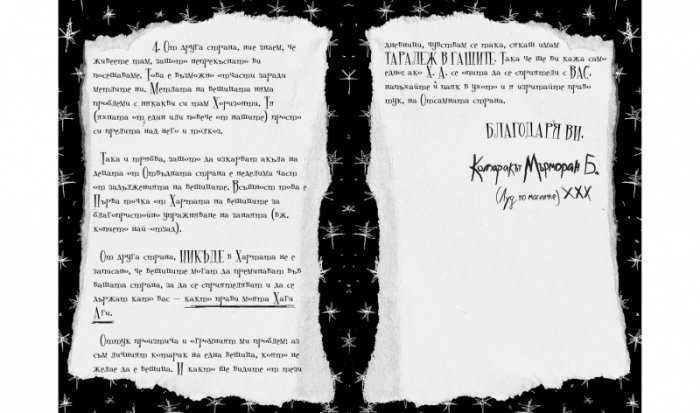 4. От друга страна, ние знаем, че
живеете там, защото непрекъснато ви
посещаваме. Това е възможно отчасти заради
метлите ни. Метлата на вещицата няма
проблеми с никакви си там Хоризонти. Тя
(яхната от един или повече от нашите) просто
си прелита над него и толкоз.
Така и трябва, защото да изкарват акъла на
децата от Отвъдната страна е неделима част
от задълженията на вещиците. Всъщност това е
Първа точка от Хартата на вещиците за
благопристойно упражняване на занаята (вж.
копието най-отзад).
От друга страна, НИКЪДЕ в Хартата не е
записано, че вещиците могат да преминават във
вашата страна, за да се сприятеляват и да се
държат като вас – както прави моята Хаги
Аги.
Оттук произтича и огромният ми проблем: аз
съм личният котарак на една вещица, която не
желае да е вещица. И както ще видите от тези
дневници, чувствам се така, сякаш имам
ТАРАЛЕЖ В ГАЩИТЕ. Така че ще ви кажа само
едно: ако Х. А. се опита да се сприятели с ВАС,
напъхайте ѝ паяк в ухото и я изритайте право
тук, на Отсамната страна.
БЛАГОДАРЯ ВИ.
Котаракът Мърморан Б.
(Луд по магиите) XXX